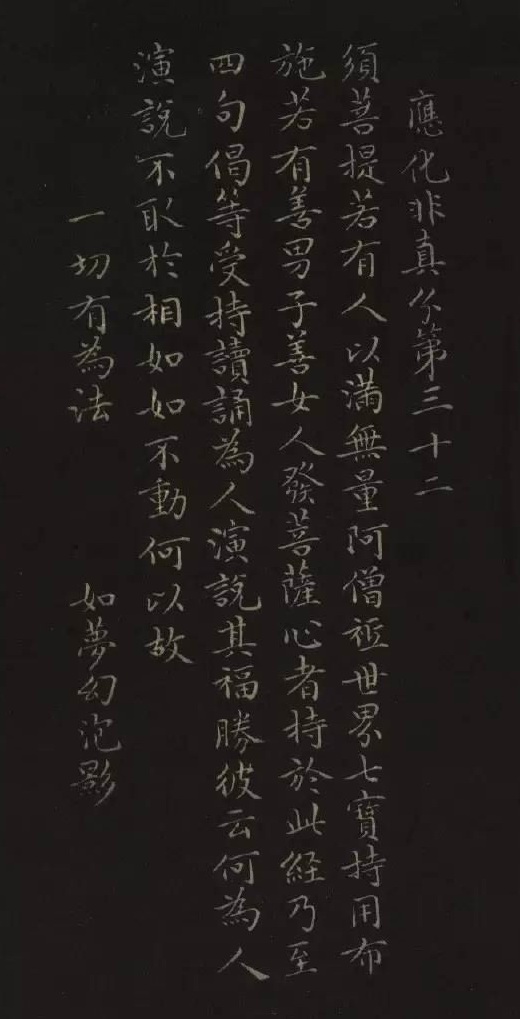 應化非真分第三十二
須菩提若有人以滿無量阿僧祇世界七寶持用布
施若有善男子善女人發菩薩心者持於此經乃至
四句偈等受持讀誦為人演說其福勝彼云何為人
演說不取於相如如不動何以故
一切有為法　如夢幻泡影